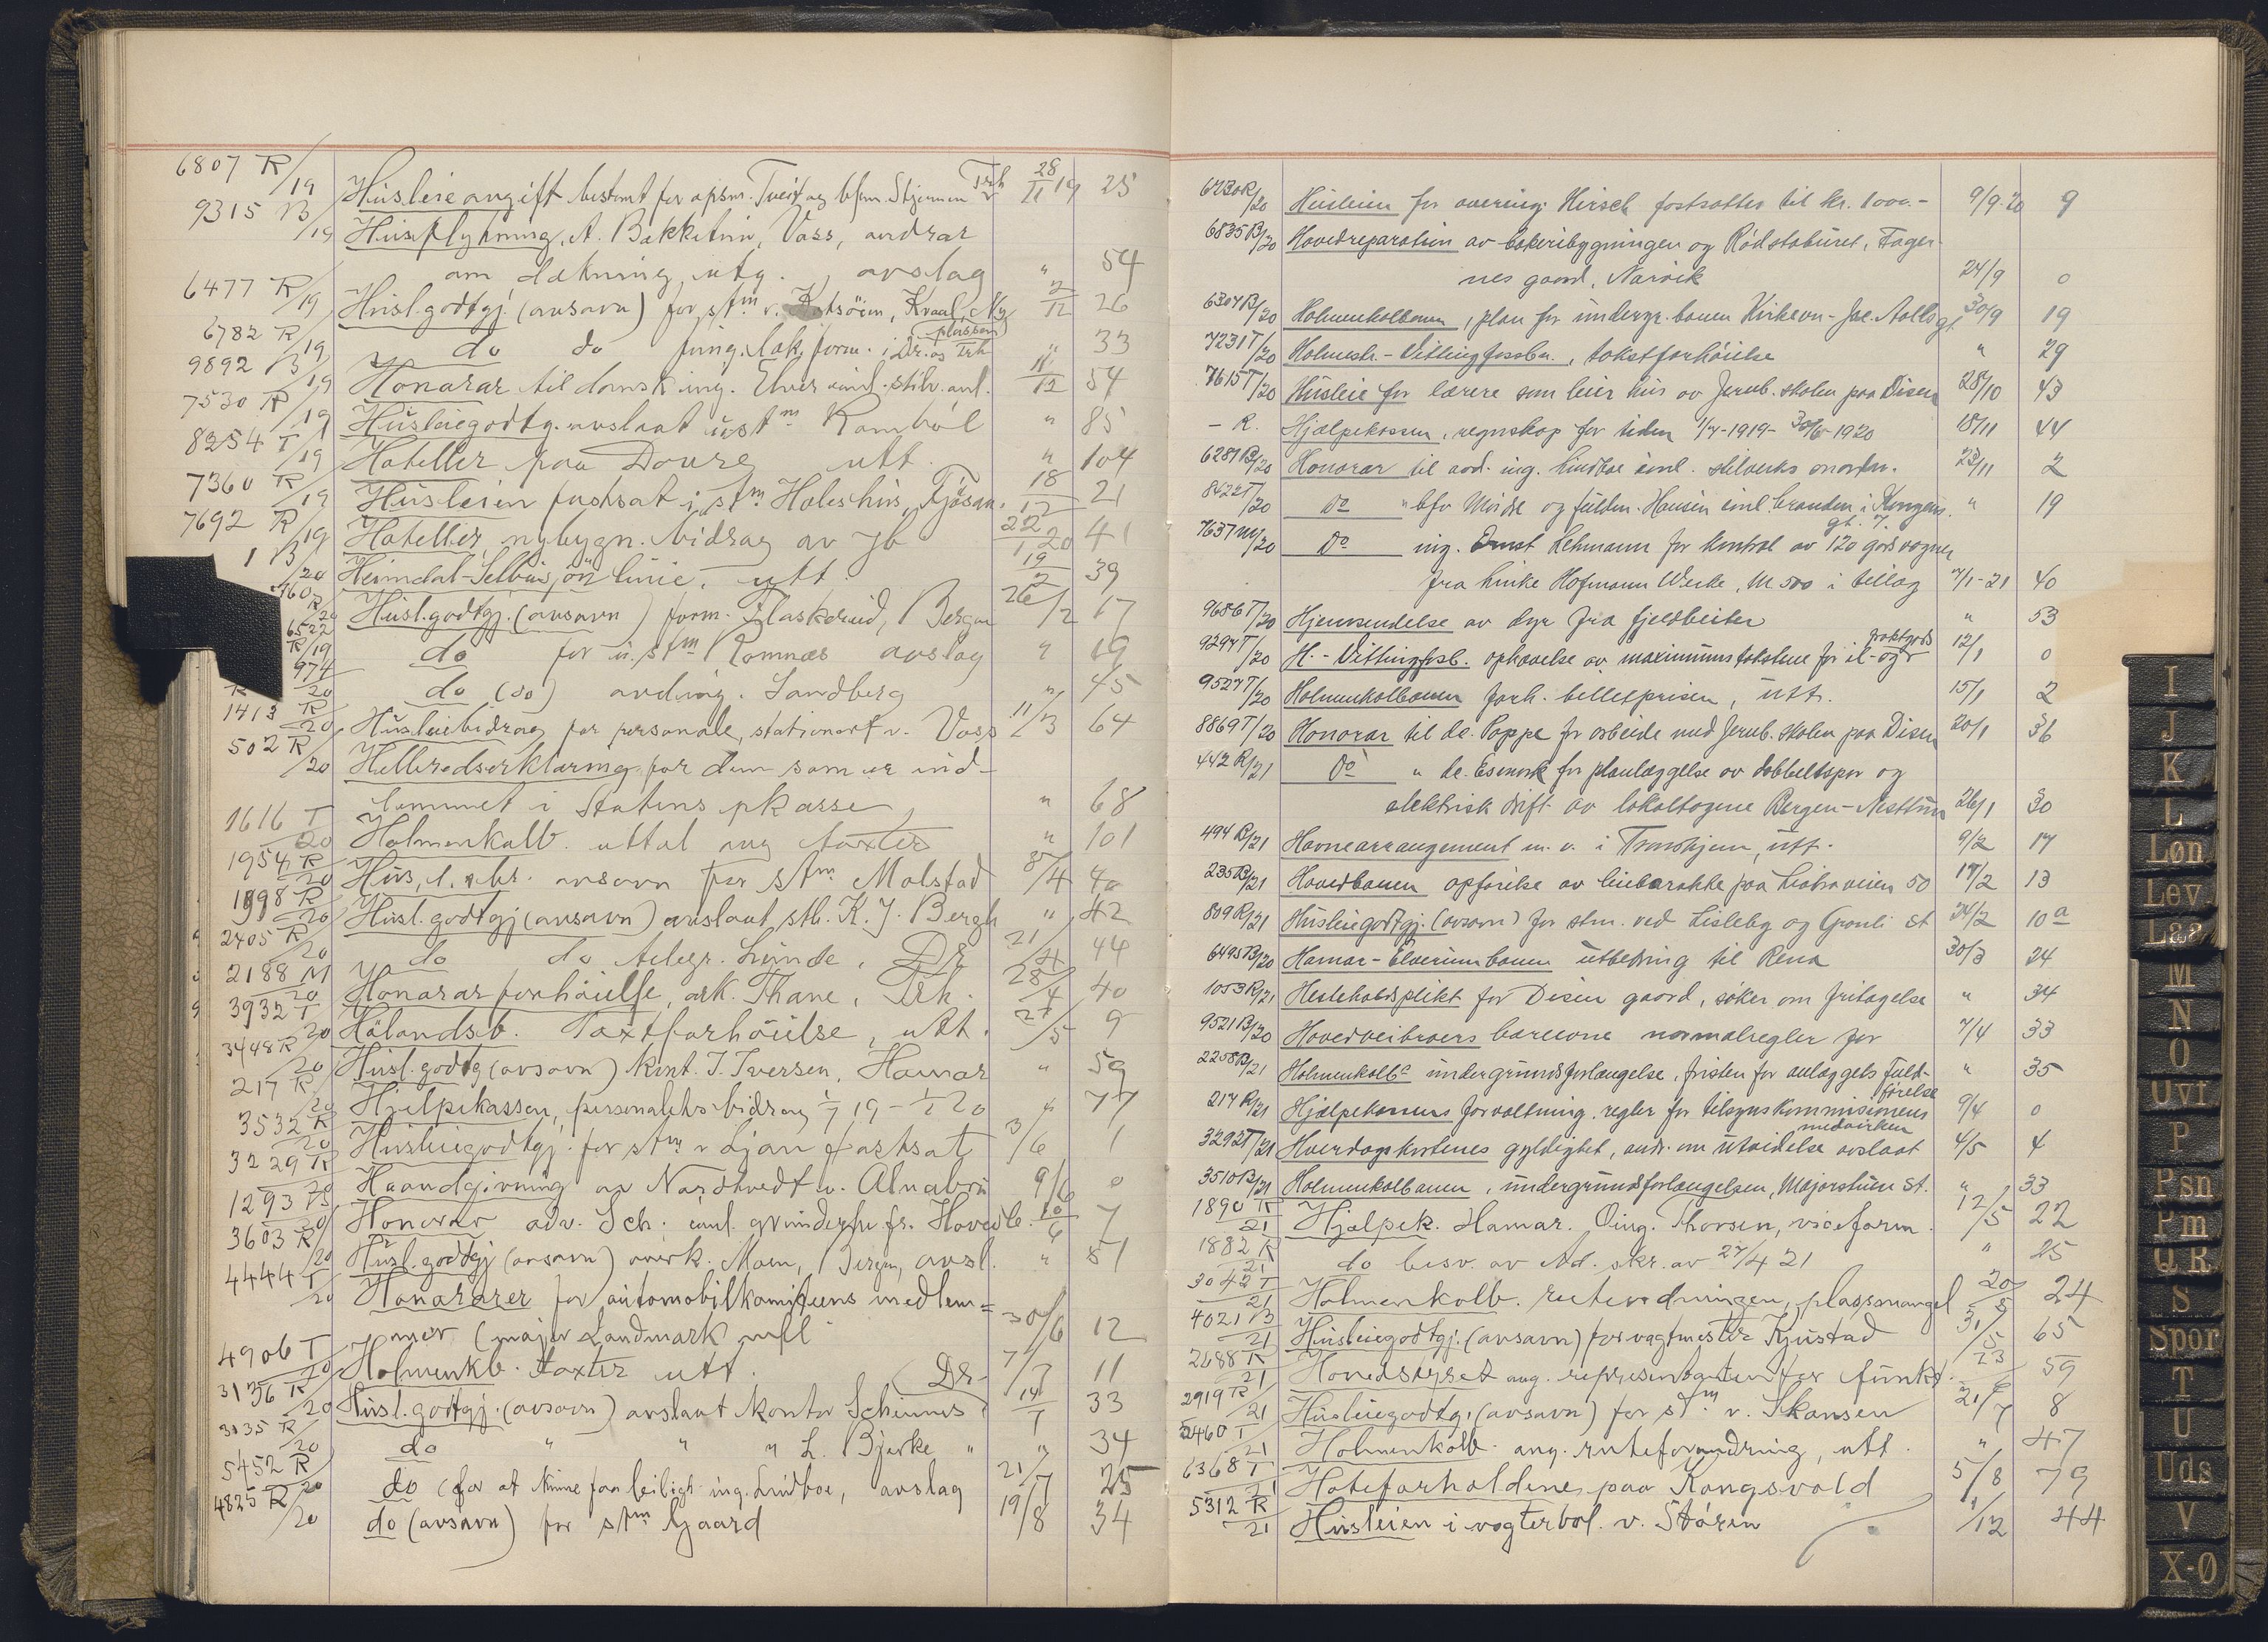 6807 R/19 Husleieangift bestemt for opsm. Tveit og bfm. Stjernen Trh 28/11 19 25
9315 B/19 Husflytning, A. Bakketun, Voss, andrar
om dækning utg., avslag " 54
6477 R/19 Husl.godtgj. (ansavn) for stm v. Kraal, 2/12 26
6782 R/19 do do fung. lok. form. i Dr. og Trh (plassen) " 33
9892 B/19 Honorar til dansk ing. stilv. anl. 11/12 54
7530 R/19 Husleiegodtg. avslaat ustm " 85
8254 T/19 Hoteller paa Dovre utt. " 104
7360 R/19 Husleien fastsat i stm Holes hus, Fjøsan. 18/12 21
7692 R/19 Hoteller, nybygn. bidrag av Jb 22/1 20 41
1 B/20 Heimdal-Selbusjøn linie, utt. 19/2 39
160 R/20 Husl.godtgj. (avsavn) form. Flaskerud, Bergen 26/2 17
6522 R/19 do for u. stm Romnæs avslag " 19
974 R/20 do (do) anding. Sandberg " 45
1413 R/20 Husleiebidrag for personale, stationert v. Voss 11/3 64
502 R/20 Helbredserklæring for dem som er ind-
lemmet i Statens pkasse " 68
1616 T/20 Holmenkolb. uttal ang taxter " 101
1954 R/20 Hus, l. avsavn for stm Molstad 8/4 40
1998 R/20 Husl.godtgj (avsavn) avslaat stb. K. J. Bergh " 42
2405 R/20 do do telegr. Lunde, Dr 21/4 44
2188 M/20 Honorarforhøielse, ark. Thane, Trh. 28/4 40
3932 T/20 Hølandsb. Taxtforhøielse, utt. 27/5 9
3448 R/20 Husl.godtg (avsavn) kont. I. Iversen, Hamar " 59
217 R/20 Hjelpekassen, personalets bidrag 1/7 19 - 1/1 20 " 77
3532 R/20 Husleiegodtgj. for stm v Ljan fastsat 3/6 1
3229 R/20 Haandgivning av Nordtvedt v. Alnabru 9/6 0
1293 B/20 Honorar adv. Sch. anl. grunderhv. fr. Hovedb. 10/6 7
3603 R/20 Husl.godtgj (avsavn) overk. Moen, Bergen, avsl. " 81
4444 T/20 Honorarer for automobilkomiteens medlem=
mer (major Landmark mfl 30/6 12
4906 T/20 Holmenkb. taxter utt. 7/7 11
3136 R/20 Husl.godtgj. (avsavn) avslaat kontor Dr. 14/7 33
3135 R/20 do " " " L. Bjerke " " 34
5452 R/20 do (for at kunne faa leiligh. ing. Lindboe, avslag 21/7 25
4825 R/20 do (avsavn) for stm Gaard 19/8 34
6230R/20 Husleien for overing. Hirsch fastsattes til kr. 1000.- 9/9-20 9
6835B/20 Hovedreparation av bakeribygningen og Rødstaburet, Fager-
nes gaard, Narvik 24/9 0
6304B/20 Holmenkolbanen, plan for undergr. banen Kirkevn - Jac. Aallsgt. 30/9 19
7231T/20 Holmestr.-Vittingfossbn., takstforhøielse " 29
7615T/20 Husleie for lærere som leier hus av Jernb. skolen paa Disen 28/10 43
- R. Hjælpekassen, regnskap for tiden 1/7-1919-30/6-1920 18/11 44
6281B/20 Honorar til avd. ing. Lindboe anl. stilverks anordn. 23/11 2
8422T/20 Do " bfv Moidse og fuldm. Hansen anl. branden i Kongens gt. 7. " 19
7637M/20 Do ing. Ernst Lehmann for kontrol av 120 godsvogner
fra Linke Hofmann Werke, M 500 i tillæg 7/1-21 40
9686T/20 Hjemsendelse av dyr fra fjeldbeiter " 53
9297T/20 H.-Vittingfosb. ophævelse av maximumstakstene for il- og fraktgods 12/1 0
9527T/20 Holmenkolbanen forh. billetpriser, utt. 15/1 2
8869T/20 Honorar til dr. Poppe for arbeide med Jernb. skolen paa Disen 20/1 36
442 R/21 Do " dr. Esmark for planlæggelse av dobbeltspor og
elektrisk drift av lokaltogene Bergen-Nesttun 26/1 30
494 B/21 Havnearrangement m. v. i Trondhjem, utt. 9/2 17
235B/21 Hovedbanen opførelse av liebarakke paa Liabraveien 50 17/2 13
809 R/21 Husleiegodtgj. (avsavn) for stm. ved Lisleby og Gronli st 24/2 10a
6495B/20 Hamar-Elverumbanen utbedring til Rena 30/3 24
1053R/21 Hesteholdsplikt for Disen gaard, søker om fritagelse " 34
9521B/20 Hovedveibroers bæreevne normalregler for 7/4 33
2258B/21 Holmenkolbn undergrundsforlængelse, fristen for anlæggets fuld-
førelse " 35
217 R/21 Hjælpekassens forvaltning. regler for tilsynskommisionens medvirken 9/4 0
3292T/21 Hverdagskortenes gyldighet, andr. om utvidelse avslaat 4/5 4
3510B/21 Holmenkolbanen, undergrundsforlængelsen, Majorstuen st. " 33
1890 R/21 Hjælpek. Hamar. Oing. Thorsen, viceform. 12/5 22
1882 R/21 do besv. av Ad. skr. av 27/4 21 " 25
3042 T/21 Holmenkolb. ruteordningen, plassmangel 20/5 24
4021 B/21 Husleiegodtgj. (avsavn) for vagtmester Kjustad 31/5 65
2688 R/21 Hovedstyret ang. representanten for funkt. 23/6 59
2919 R/21 Husleiegodtg. (avsavn) for stm v. Skansen 21/7 8
2460 T/21 Holmenkolb. ang. ruteforandring, utt. " 47
6368 T/21 Hoteforholdene paa Kongsvold 5/8 79
5312 R/21 Husleien i vogterbol. v. Støren 1/12 44
I
J
K
L
Løn
Lev.
Laa
M
N
O
Uvf
P
Psn
Pm
Q R
S
Spor
T
U
Uds
V
X-Ø